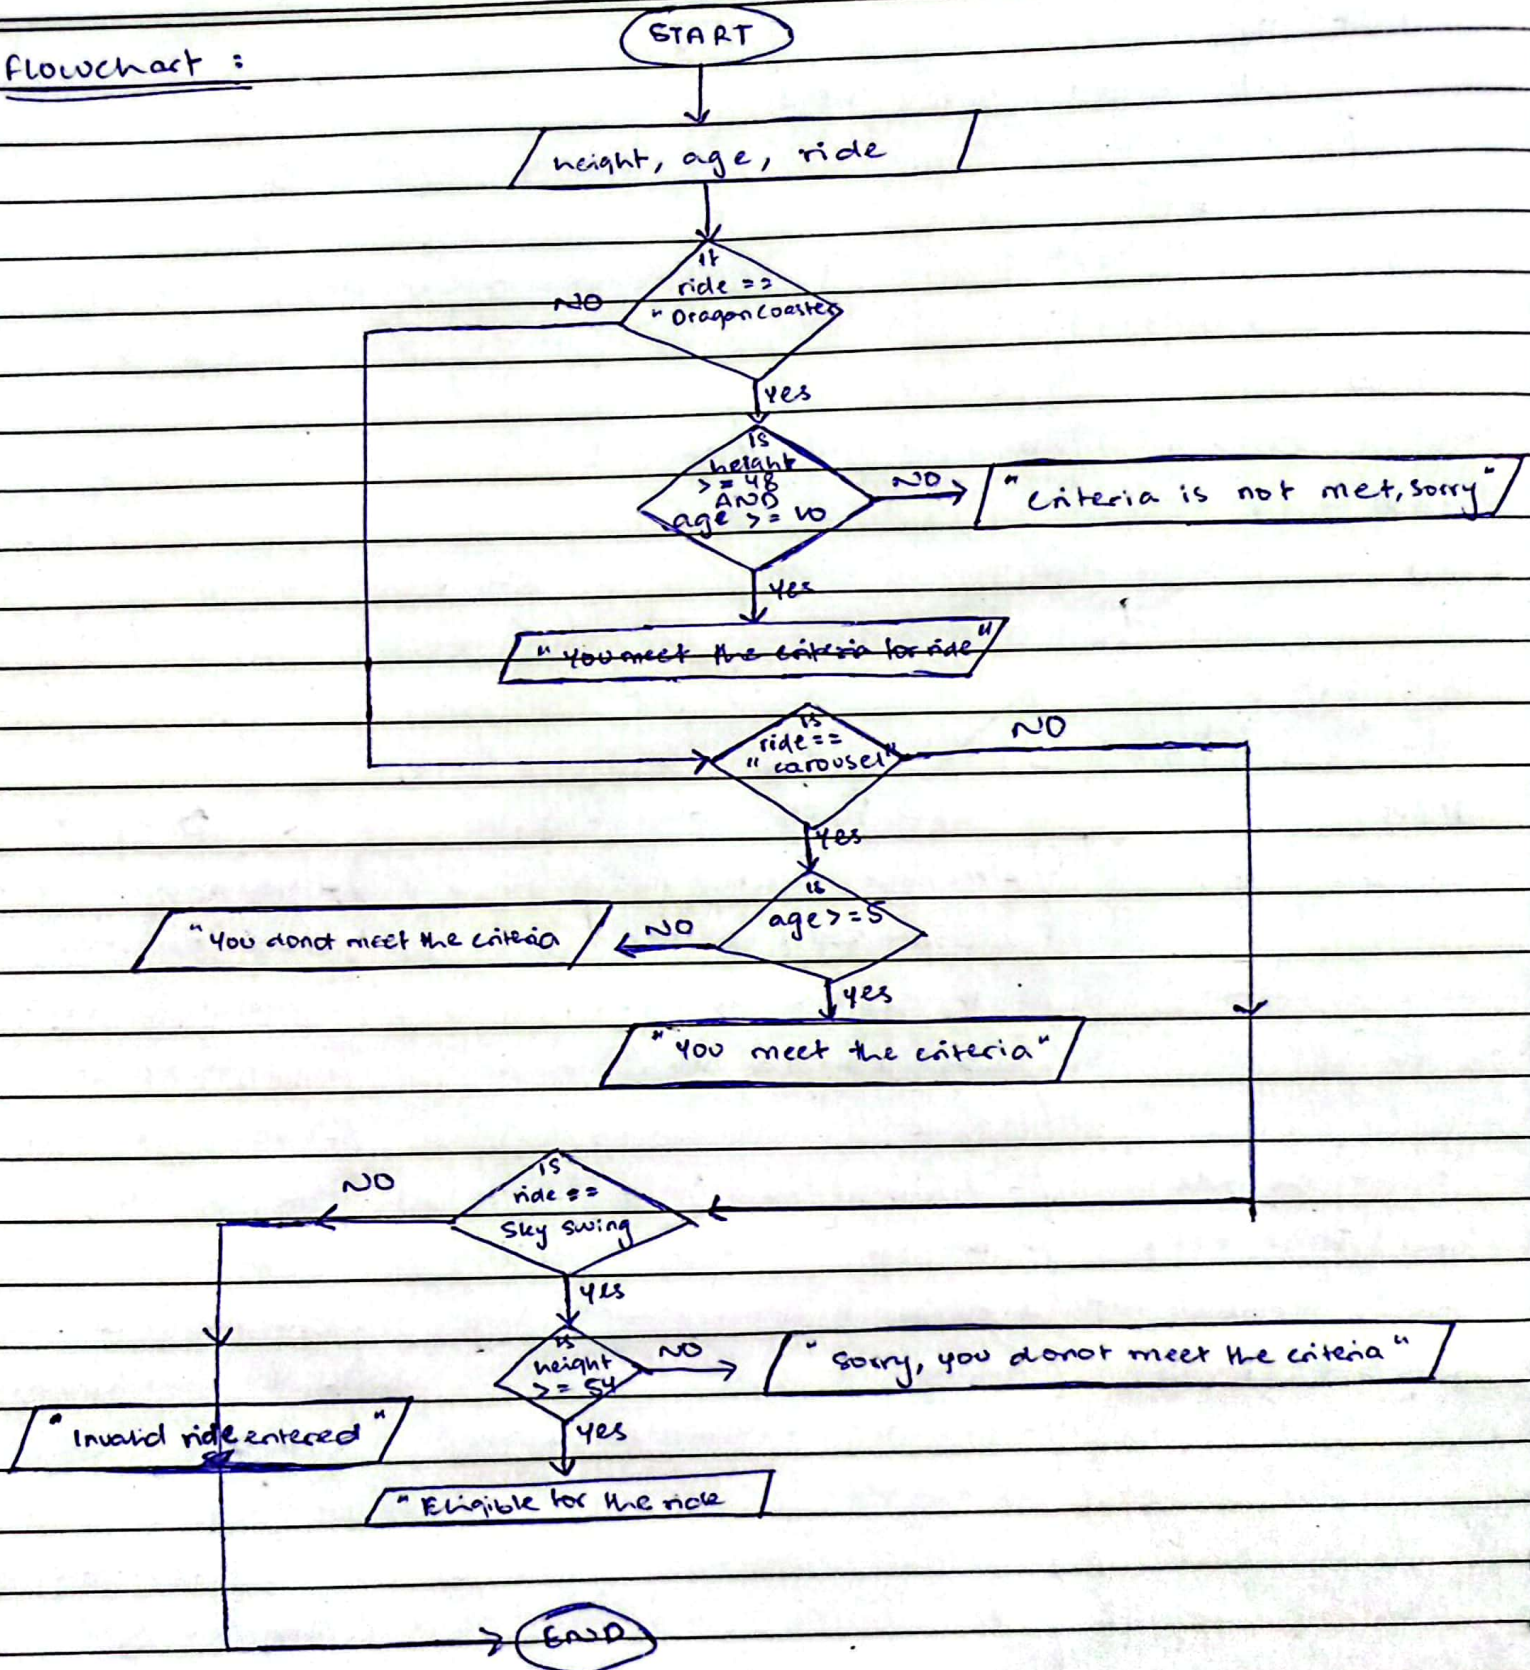 START
Flowchart :
height, age, ride
If
ride ==
" Dragon Coaster
NO
Yes
Is
height
>= 48
AND
age >= 10
NO
" Criteria is not met, sorry"
Yes
" You meet the criteria for ride"
Is
ride ==
" carousel"
NO
Yes
is
age >= 5
NO
"You donot meet the criteria
Yes
"You meet the criteria"
Is
ride ==
Sky swing
NO
Yes
Is
height
>= 54
NO
" Sorry, you donot meet the criteria "
" Invalid ride entered "
Yes
" Eligible for the ride
END